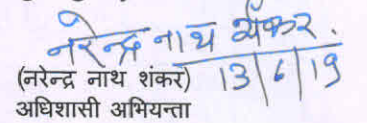 नरेन्द्र नाथ शंकर.
(नरेन्द्र नाथ शंकर) 13/6/19
अधिशासी अभियन्ता